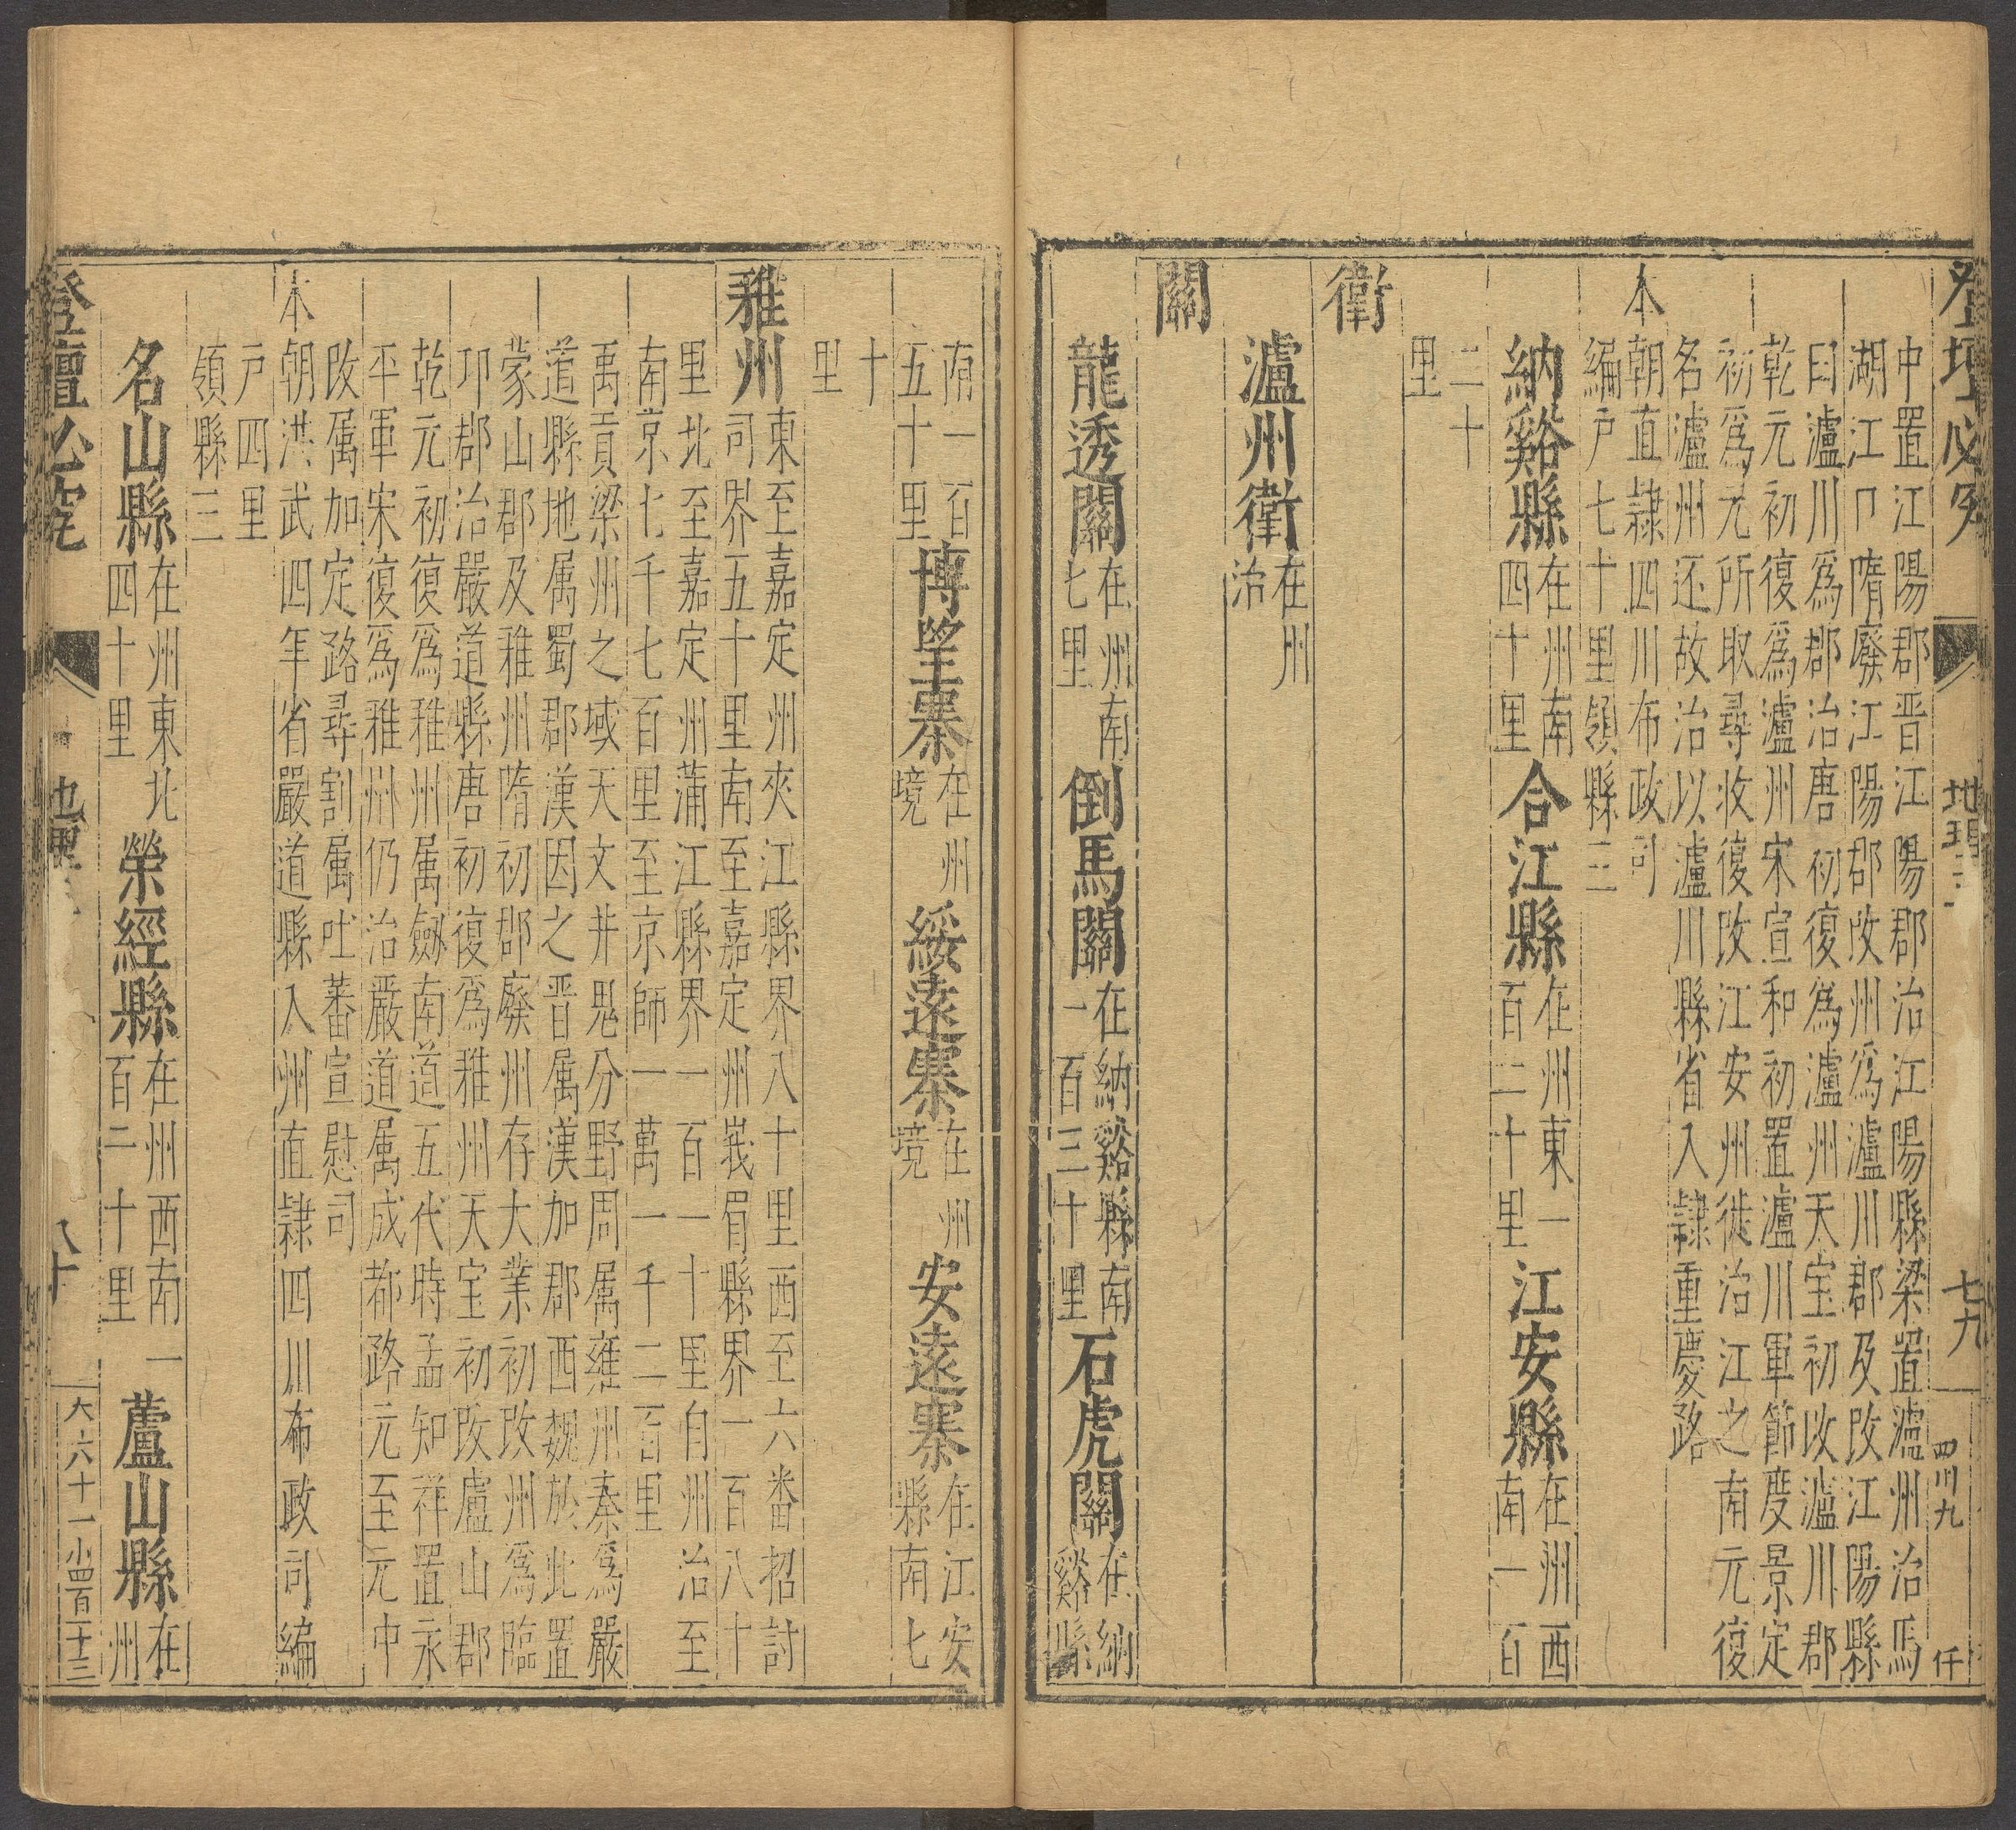 登壇必究
地理
七九
四川九
仟
中置江陽郡晋江陽郡治江陽縣梁置瀘州治馬
湖江口隋廢江陽郡改州爲瀘川郡及改江陽縣
曰瀘川爲郡治唐初復爲瀘州天宝初改瀘川郡
乾元初復爲瀘州宋宣和初置瀘川軍節度景定
初爲元所取尋收復改江安州徙治江之南元復
名瀘州还故治以瀘川縣省入隷重慶路
本朝直隷四川布政司
編戸七十里領縣三
納谿縣
在州南
四十里
合江縣
在州東一
百二十里
江安縣
在州西
南一百
二十
里
衛
瀘州衛
在州
治
關
龍透關
在州南
七里
倒馬關
在納谿縣南
一百三十里
石虎關
在納
谿縣
南一百
五十里
博望寨
在州
境
綏遠寨
在州
境
安遠寨
在江安
縣南七
十
里
雅州
東至嘉定州夾江縣界八十里西至六畨招討
司界五十里南至嘉定州峩眉縣界一百八十
里北至嘉定州蒲江縣界一百一十里自州治至
南京七千七百里至京師一萬一千二百里
禹貢梁州之域天文井鬼分野周属雍州秦爲嚴
道縣地属蜀郡漢因之晋属漢加郡西魏於此置
蒙山郡及雅州隋初郡廢州存大業初改州爲臨
邛郡治嚴道縣唐初復爲雅州天宝初改盧山郡
乾元初復爲雅州属劔南道五代時孟知祥置永
平軍宋復爲雅州仍治嚴道属成都路元至元中
改属加定路尋割属吐蕃宣慰司
本朝洪武四年省嚴道縣入州直隷四川布政司編
戸四里
領縣三
名山縣
在州東北
四十里
榮經縣
在州西南一
百二十里
蘆山縣
在
州
登壇必究
地理
八十
大六十一小四百二十三